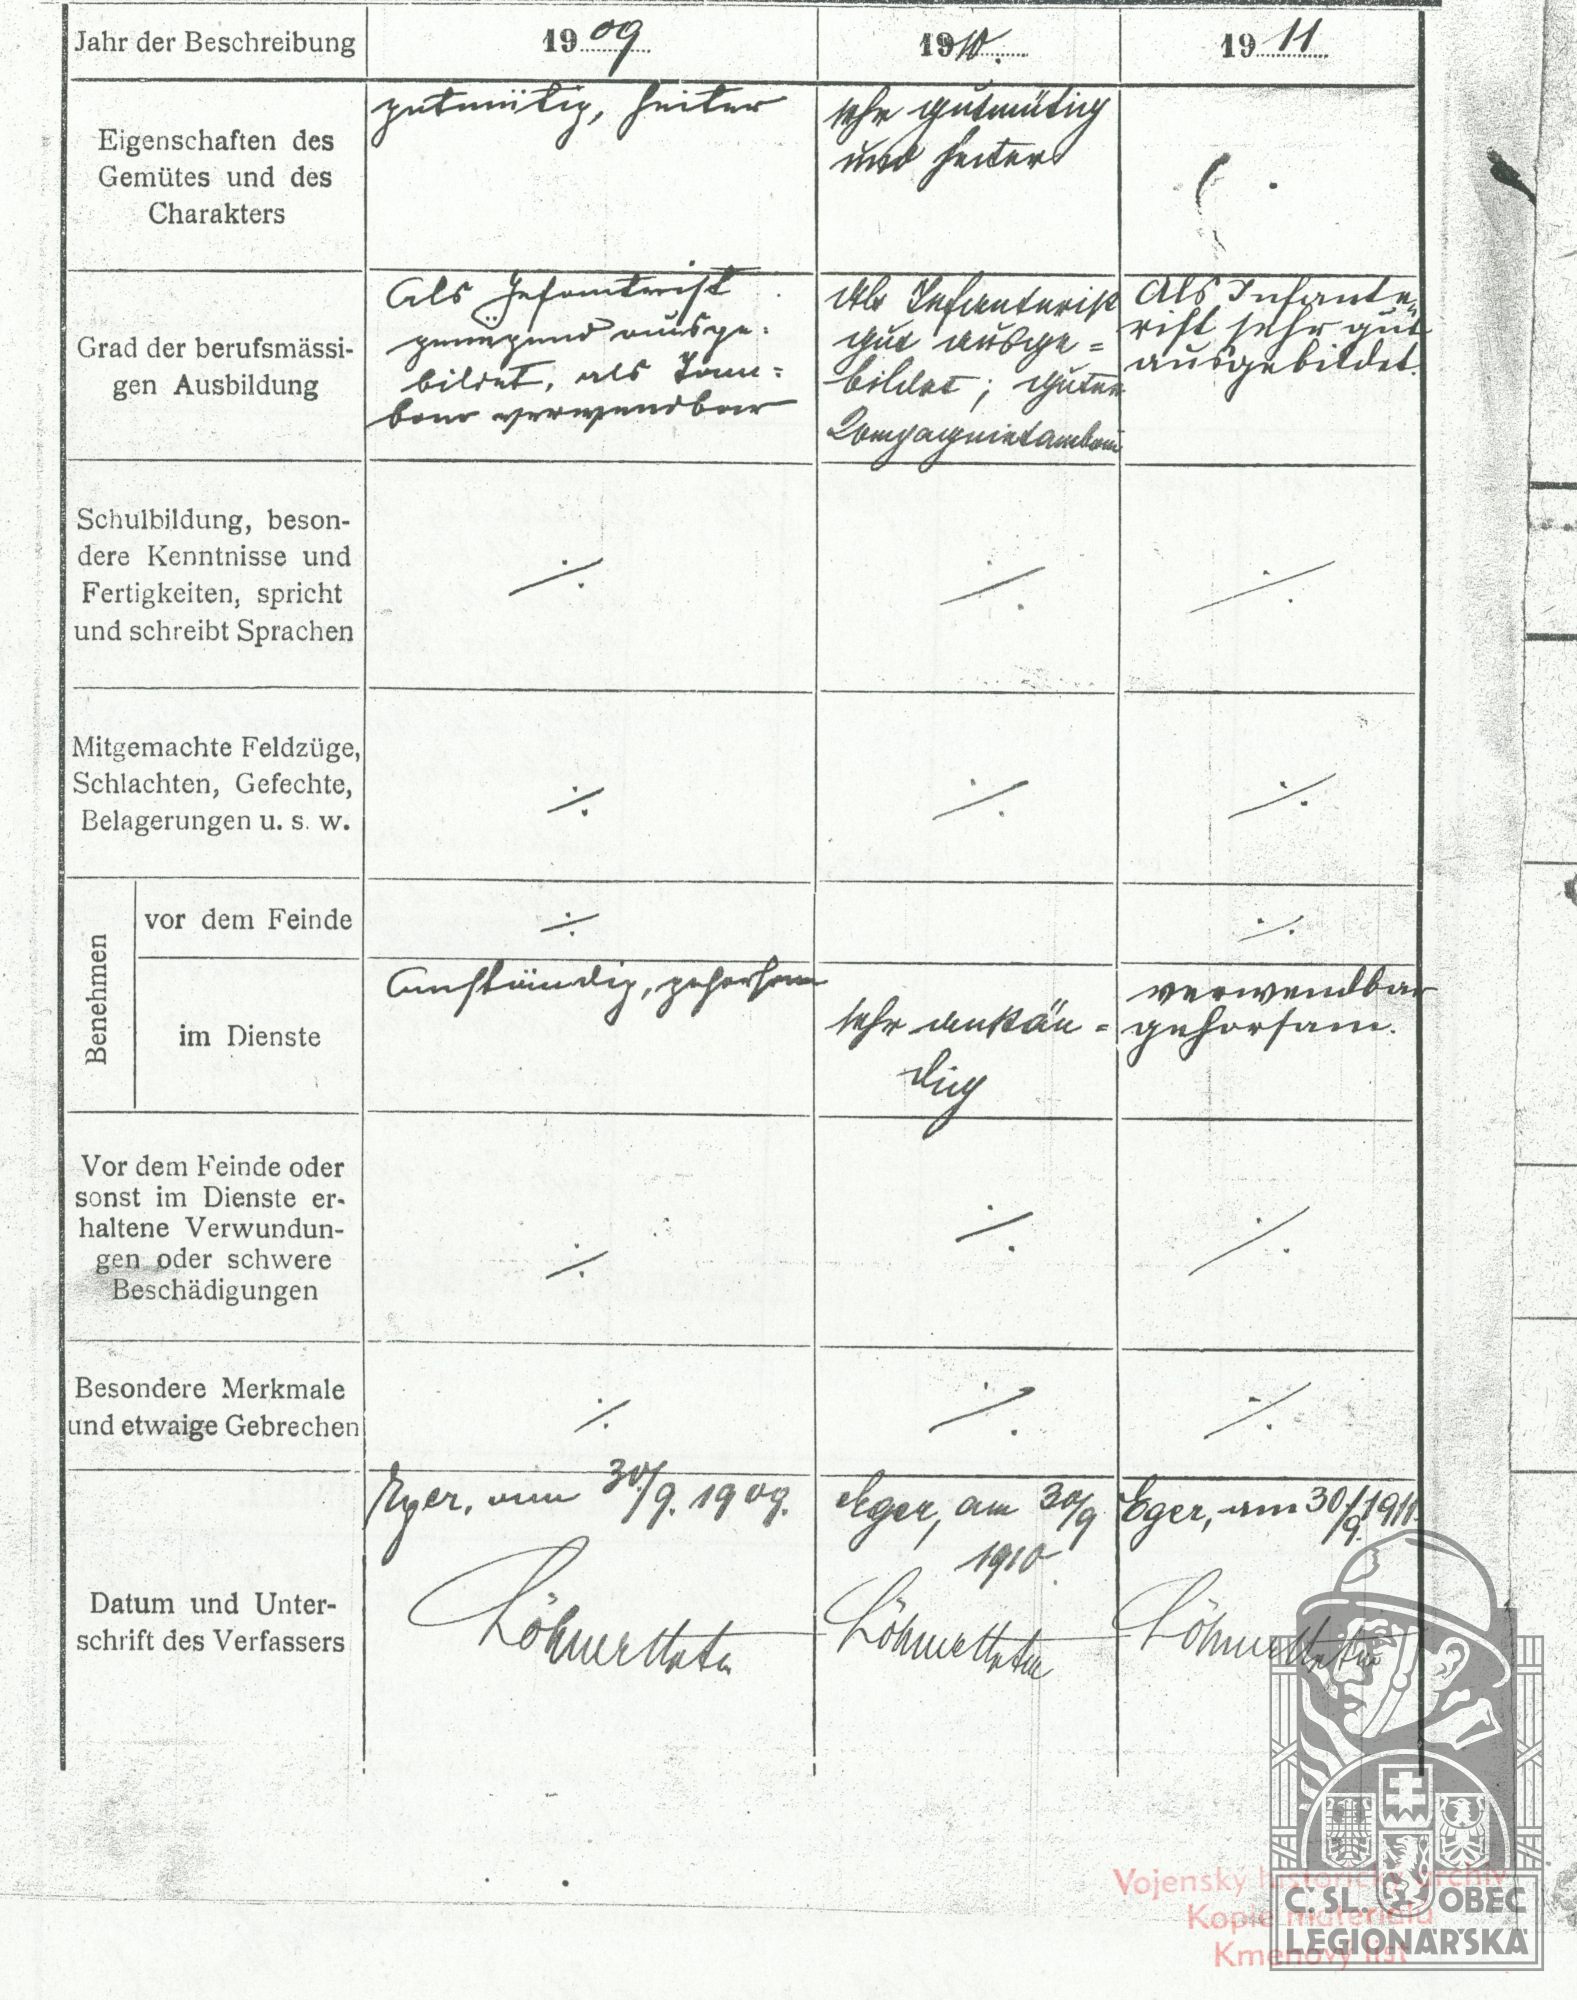 Jahr der Beschreibung
19 09
1910.
19 11
Eigenschaften des
Gemütes und des
Charakters
gutmütig, heiter
sehr gutmütig
und heiter
Grad der berufsmässi-
gen Ausbildung
Als Infanterist
genügend ausge-
bildet, als Tam=
bour verwendbar
Als Infanterist
gut ausge=
bildet; guter
Compagnietambour
Als Infante-
rist sehr gut
ausgebildet.
Schulbildung, beson-
dere Kenntnisse und
Fertigkeiten, spricht
und schreibt Sprachen
·/.
·/.
·/.
Mitgemachte Feldzüge,
Schlachten, Gefechte,
Belagerungen u. s. w.
·/.
·/.
·/.
Benehmen
vor dem Feinde
·/.
·/.
im Dienste
Anständig, gehorsam
sehr anstän=
dig
verwendbar
gehorsam.
Vor dem Feinde oder
sonst im Dienste er-
haltene Verwundun-
gen oder schwere
Beschädigungen
·/.
·/.
·/.
Besondere Merkmale
und etwaige Gebrechen
·/.
·/.
·/.
Datum und Unter-
schrift des Verfassers
Eger, am 30/9. 1909.
Eger, am 30/9
1910.
Eger, am 30/9. 1911.
Vojenský historický archiv
Kopie materiálu
Kmenový list
Č. SL. OBEC
LEGIONÁŘSKÁ